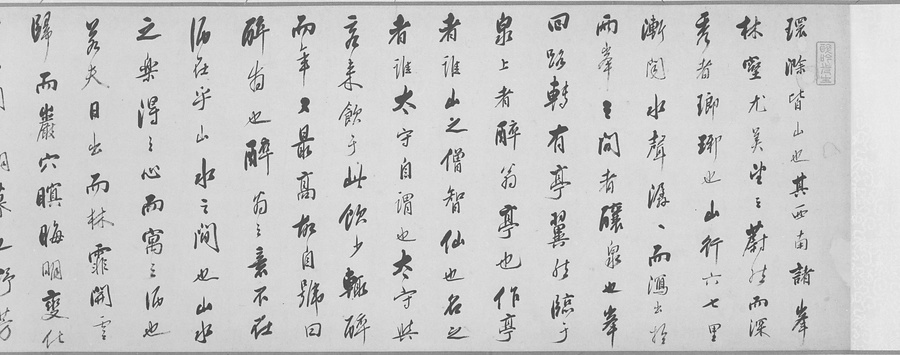 環滁皆山也其西南諸峯
林壑尤美望之蔚然而深
秀者瑯琊也山行六七里
漸聞水聲潺〻而瀉出於
兩峯之間者釀泉也峯
回路轉有亭翼然臨于
泉上者醉翁亭也作亭
者誰山之僧智仙也名之
者誰太守自謂也太守與
客來飲于此飲少輒醉
而年又最高故自號曰
醉翁也醉翁之意不在
酒在乎山水之間也山水
之樂得之心而寓之酒也
若夫日出而林霏開雲
歸而巖穴暝晦明變化